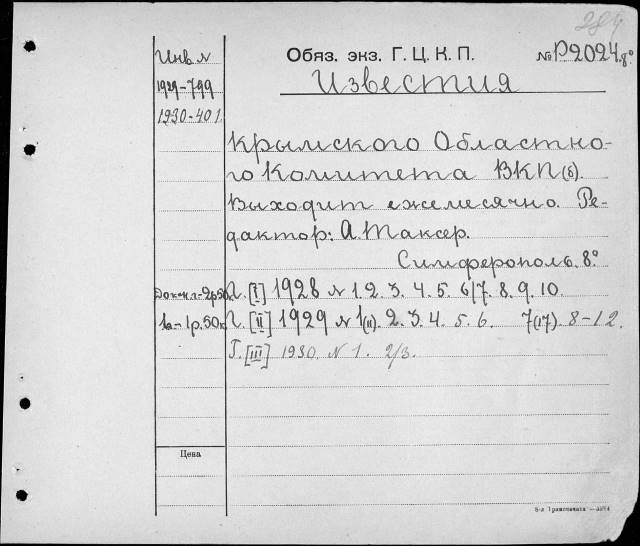 284
Инв. N
Обяз. экз. Г. Ц. К. П.
№ Р2024 8°
Известия
1929-799
1930-401
Крымского Областно-
го Комитета ВКП(б).
Выходит ежемесячно. Ре-
дактор: А. Таксер.
Симферополь. 8°
Г. [I] 1928 N 1. 2. 3. 4. 5. 6/7. 8. 9. 10.
1а-1р.50к Г. [II] 1929 N 1(11). 2. 3. 4. 5. 6. 7(17). 8-12.
Г. [III] 1930. N 1. 2/3.
Цена